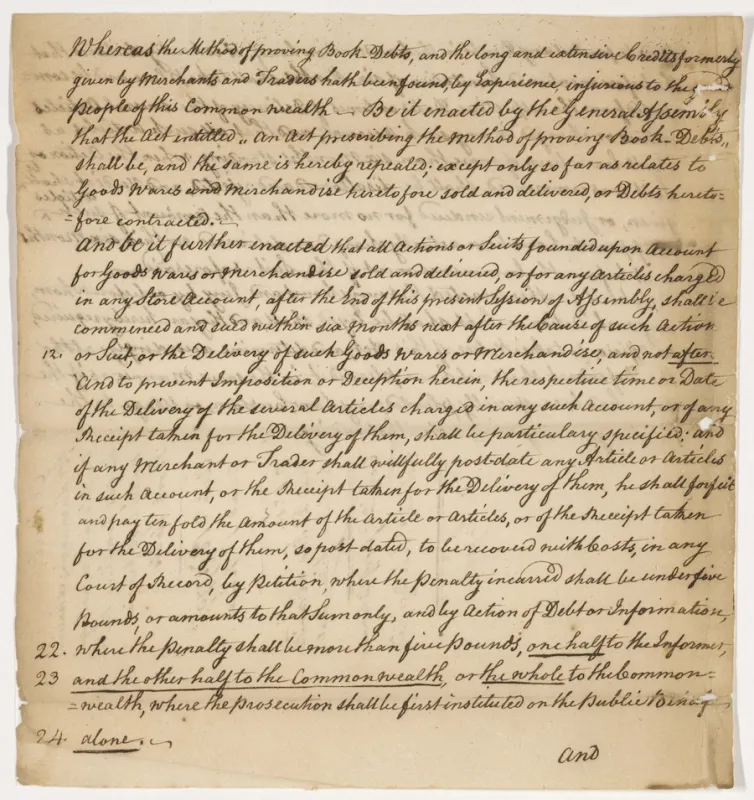 Whereas the Method of proving Book-Debts, and the long and extensive Credits formerly
given by Merchants and Traders hath been found, by Experience, injurious to the good
People of this Commonwealth — Be it enacted by the General Assembly
that the Act entitled „ An Act prescribing the Method of proving Book-Debts„
shall be, and the same is hereby repealed; except only so far as relates to
Goods Wares and Merchandise heretofore sold and delivered, or Debts hereto=
=fore contracted. —
And be it further enacted that all Actions or Suits founded upon Account
for Goods Wares or Merchandise sold and delivered, or for any Articles charged
in any Store Account, after the End of this present Session of Assembly, shall be
commenced and sued within six months next after the Cause of such Action
12. or Suit, or the Delivery of such Goods Wares or Merchandise, and not after.
And to prevent Imposition or Deception herein, the respective time or Date
of the Delivery of the several Articles charged in any such Account, or of any
Receipt taken for the Delivery of them, shall be particulary specified; and
if any Merchant or Trader shall willfully post-date any Article or Articles
in such Account, or the Receipt taken for the Delivery of them, he shall forfeit
and pay ten fold the Amount of the Article or Articles, or of the Receipt taken
for the Delivery of them, so post dated, to be recoverd with Costs, in any
Court of Record, by Petition, where the Penalty incurred shall be under five
Pounds, or amounts to that Sum only, and by Action of Debt or Information,
22. where the Penalty shall be more than five Pounds, one half to the Informer,
23 and the other half to the Commonwealth, or the whole to the Common=
=wealth, where the Prosecution shall be first instituted on the Public Being
24. alone. —
And